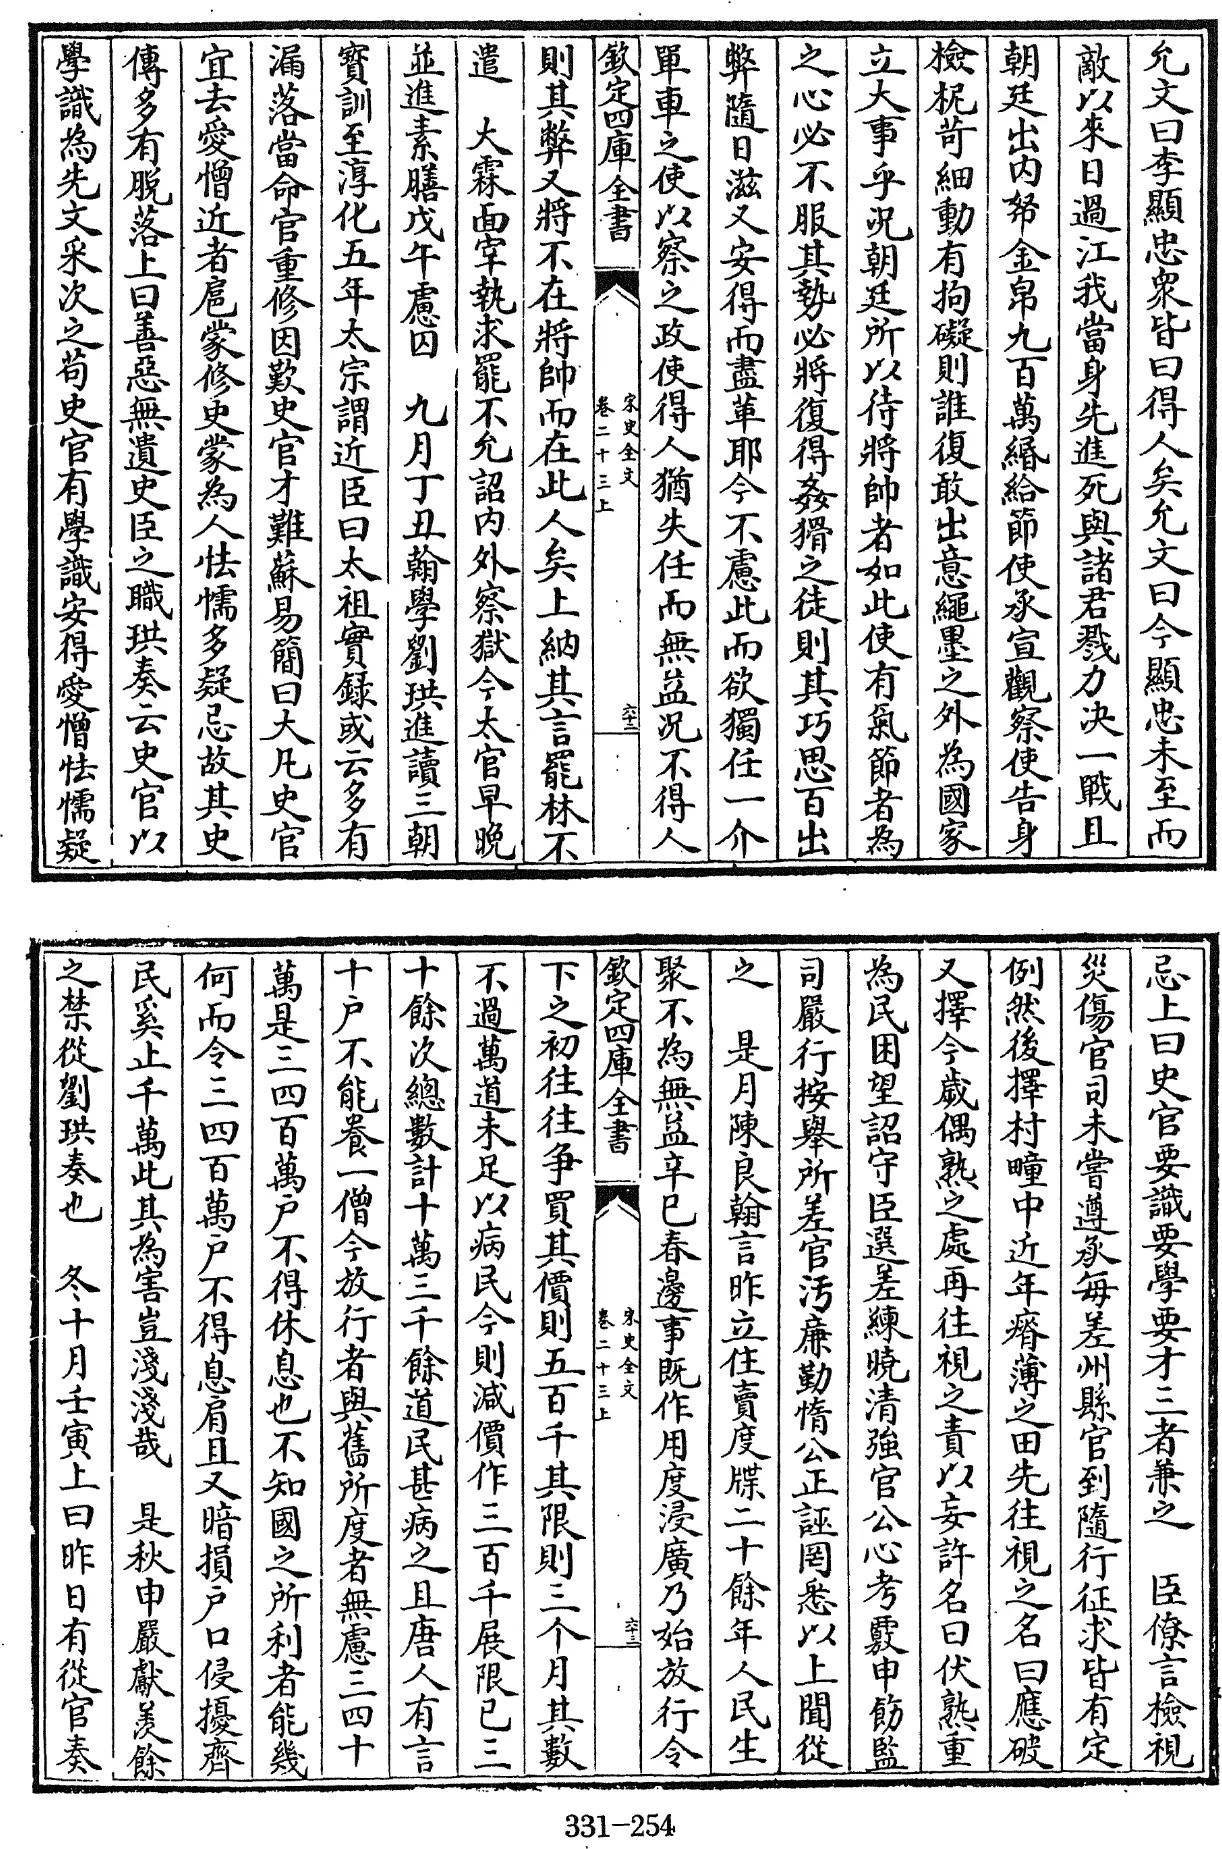 允文曰李顯忠衆皆曰得人矣允文曰今顯忠未至而
敵以來日過江我當身先進死與諸君戮力决一戰且
朝廷出内帑金帛九百萬緡給節使承宣觀察使告身
檢柅苛細動有拘礙則誰復敢出意繩墨之外為國家
立大事乎况朝廷所以待將帥者如此使有氣節者為
之心必不服其勢必將復得姦猾之徒則其巧思百出
弊隨日滋又安得而盡革耶今不慮此而欲獨任一介
單車之使以察之政使得人猶失任而無益况不得人
欽定四庫全書
宋史全文
卷二十三上
六十二
則其弊又將不在將帥而在此人矣上納其言罷林不
遣 大霖面宰執求罷不允詔内外察獄今太官早晩
並進素膳戊午慮囚 九月丁丑翰學劉珙進讀三朝
寳訓至淳化五年太宗謂近臣曰太祖實録或云多有
漏落當命官重修因歎史官才難蘇易簡曰大凡史官
宜去愛憎近者扈蒙修史蒙為人怯懦多疑忌故其史
傳多有脱落上曰善惡無遺史臣之職珙奏云史官以
學識為先文采次之苟史官有學識安得愛憎怯懦疑
忌上曰史官要識要學要才三者兼之 臣僚言檢視
災傷官司未嘗遵承每差州縣官到隨行征求皆有定
例然後擇村疃中近年瘠薄之田先往視之名曰應破
又擇今歳偶熟之處再往視之責以妄許名曰伏熟重
為民困望詔守臣選差練曉清強官公心考覈申飭監
司嚴行按舉所差官汚廉勤惰公正誣罔悉以上聞從
之 是月陳良翰言昨立住賣度牒二十餘年人民生
聚不為無益辛巳春邊事既作用度浸廣乃始放行令
欽定四庫全書
宋史全文
卷二十三上
六十三
下之初往往争買其價則五百千其限則三个月其數
不過萬道未足以病民今則減價作三百千展限已三
十餘次總數計十萬三千餘道民甚病之且唐人有言
十户不能養一僧今放行者與舊所度者無慮三四十
萬是三四百萬户不得休息也不知國之所利者能幾
何而令三四百萬户不得息肩且又暗損户口侵擾齊
民奚止千萬此其為害豈淺淺哉 是秋申嚴獻羨餘
之禁從劉珙奏也 冬十月壬寅上曰昨日有從官奏
331-254